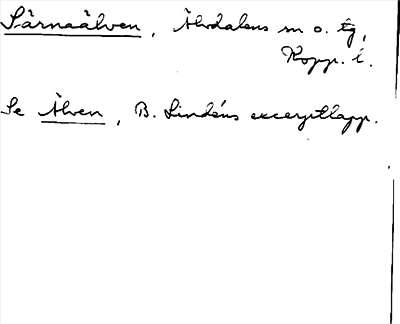 Särnaälven, Älvdalens sn o. tg,
Kopp. l.
Se Älven, B. Lindéns excerptlapp.